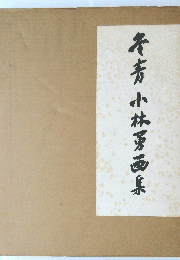 冬青小林勇画集